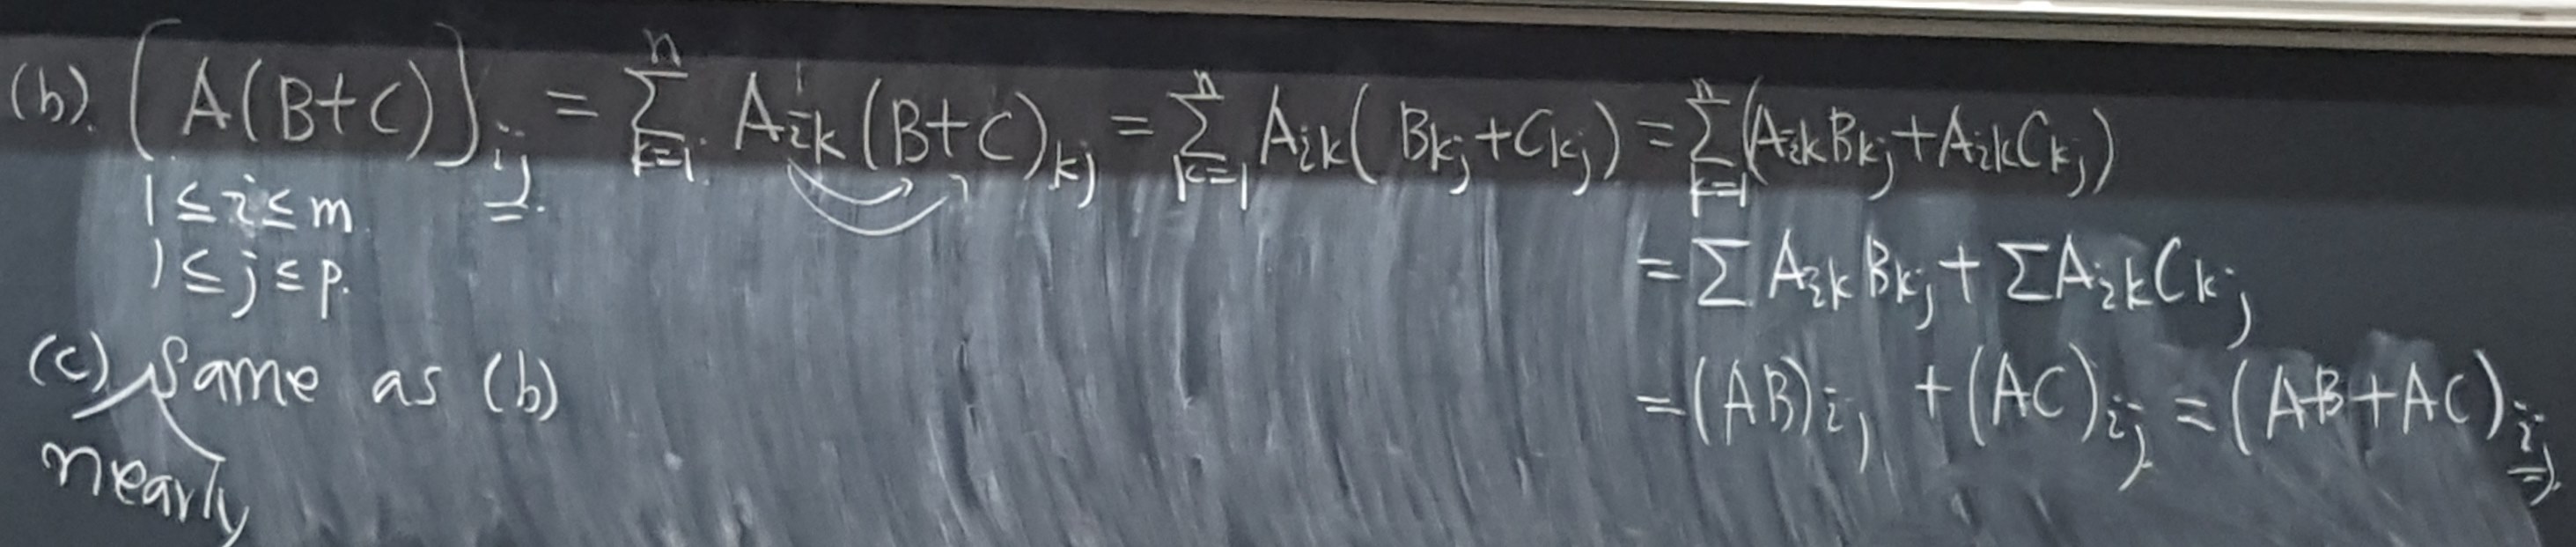 (b). [A(B+C)]ij = Σ_{k=1}^{n} Aik(B+C)kj = Σ_{k=1}^{n} Aik(Bkj+Ckj) = Σ_{k=1}^{n}(AikBkj+AikCkj)
1≤i≤m.
1≤j≤p.
= Σ AikBkj + ΣAikCkj
= (AB)ij + (AC)ij = (AB+AC)ij.
(c) same as (b)
nearly